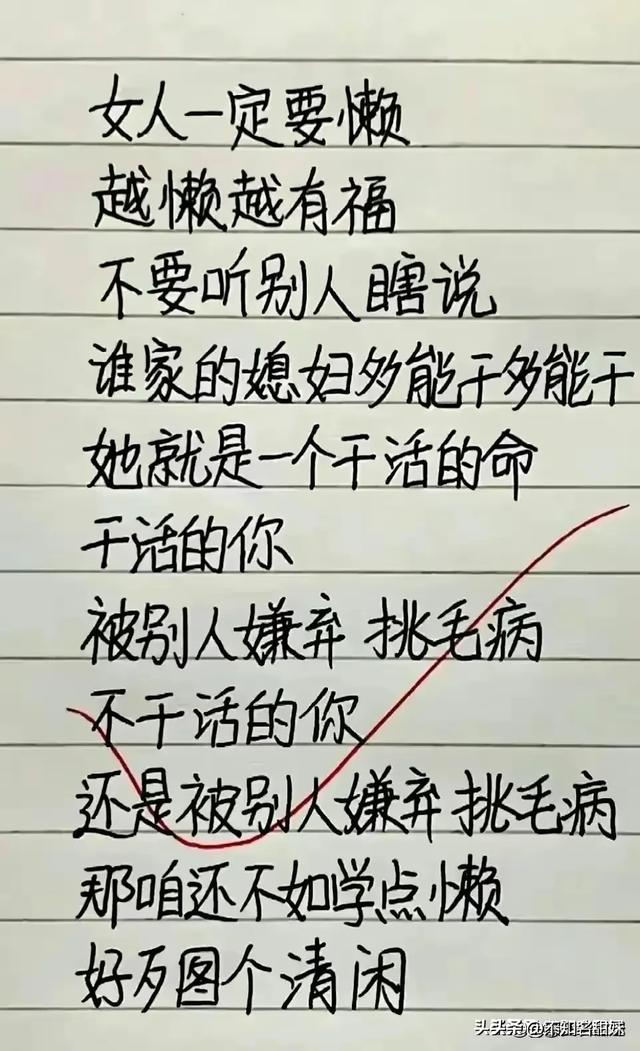 女人一定要懒
越懒越有福
不要听别人瞎说
谁家的媳妇多能干多能干
她就是一个干活的命
干活的你
被别人嫌弃 挑毛病
不干活的你
还是被别人嫌弃 挑毛病
那咱还不如学点懒
好歹图个清闲